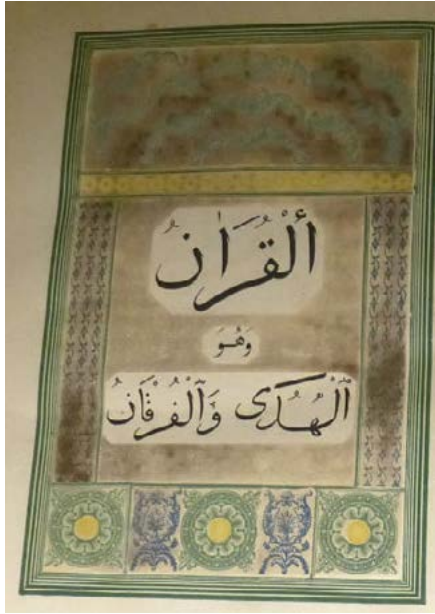 أَلْقُرَانُ
وَهُوَ
اَلْهُدَى وَاَلْفُرْقَانُ